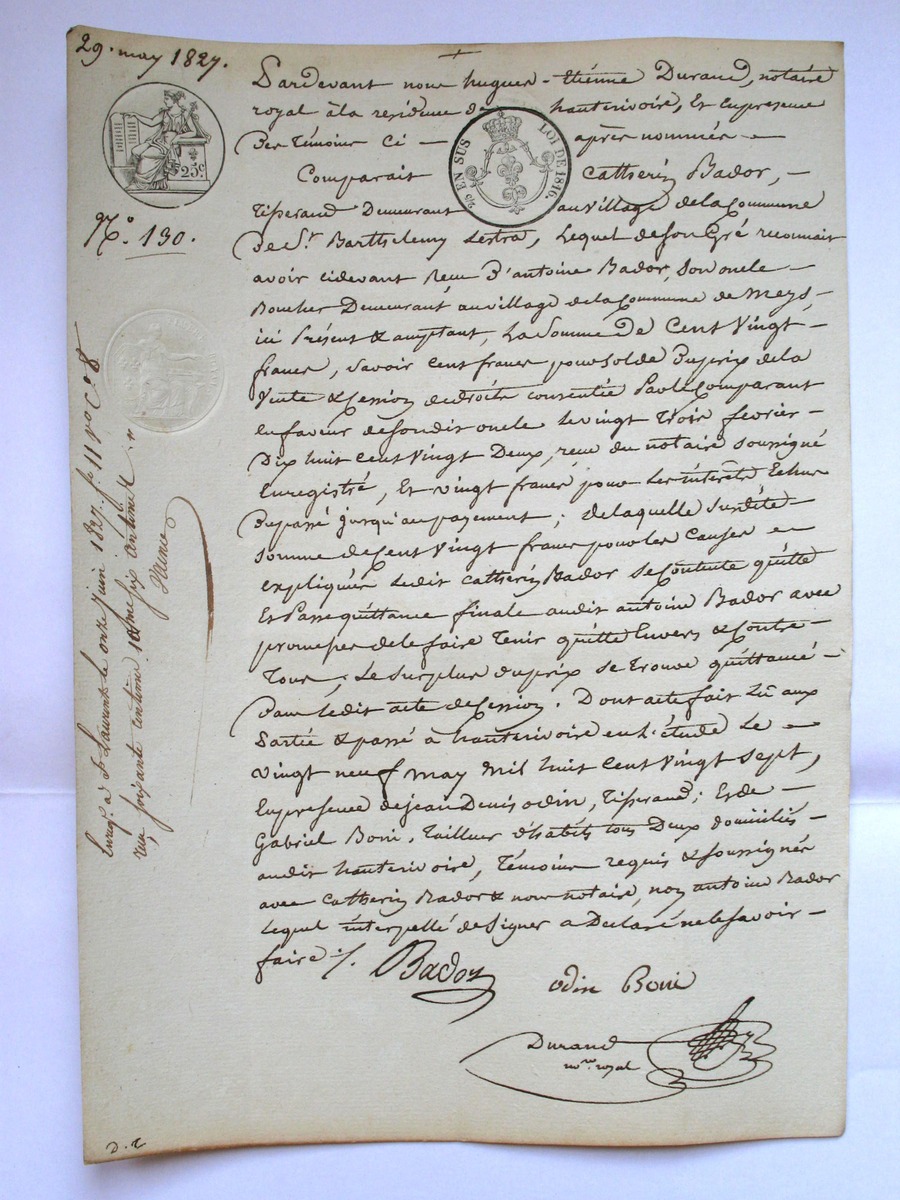 29. may 1827.
Pardevant nous hugues-Etiénne Durand, notaire
royal à la residence de hauterivoire, Et Enpresence
Des Témoins Ci- après nommés-
Comparait Cathérin Bador, -
Tisserand Demeurant au village de la Commune
de St. Barthelemy Lestra, Lequel de son Gré reconnait
avoir cidevant Recu D'antoine Bador, Son oncle -
Boucher Demeurant au village de la Commune de Meys,
ici Présent & acceptant, La Somme De Cent Vingt -
francs, Savoir cent francs pour Solde Du prix de la
Vente & Cession de droits consentie Par le Comparant
en faveur de Son dit oncle le vingt Trois février -
Dix huit cent Vingt Deux, reçue du notaire soussigné
Enregistré, Et vingt francs pour les intérêts Echus
Du passé jusqu'au payement; de laquelle Susdite
Somme de Cent Vingt francs pour les Causes
expliquées Ledit Cathérin Bador Se Contente quitte
Et Passe quittance finale audit antoine Bador avec
promesses de le faire Tenir quitte Envers & Contre -
Tous; Le Surplus du prix se trouve quittancé -
Dans Ledit acte de Cession. Dont acte fait Lû aux
Parties & passé à hauterivoire en L'étude Le -
vingt neuf may Mil huit Cent Vingt Sept,
En presence de jean Denis odin, Tisserand; Et de -
Gabriel Boni, Tailleur d'habits tous Deux domiciliés -
audit hauterivoire, Témoins requis & Soussignés
avec Cathérin Bador & nous notaire, non antoine Bador
Lequel interpellé de Signer a Déclaré ne le Savoir -
faire ./.
Bador
odin Boni
Durand
nore royal
25c
2/10 EN SUS
LOI DE 1816.
No. 130.
Enregé. à St Laurent le onze juin 1827. fo 11 vo Ce 8
reçu soixante centimes & dixme six centimes
D. r